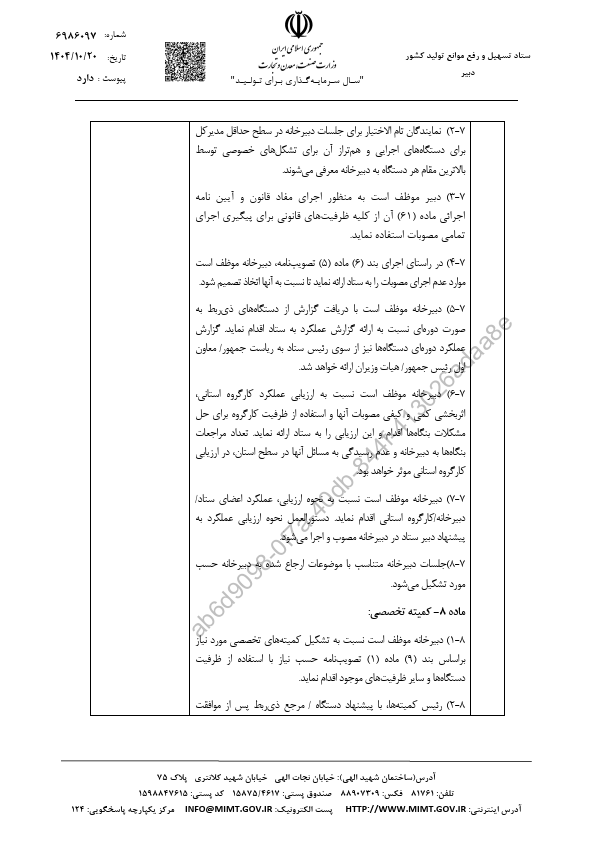 شماره: ۶۹۸۶۰۹۷
تاریخ: ۱۴۰۴/۱۰/۲۰
پیوست : دارد
جمهوری اسلامی ایران
وزارت صنعت، معدن و تجارت
"سـال سـرمایه‌گذاری بـرای تـولیـد"
ستاد تسهیل و رفع موانع تولید کشور
دبیر
۷-۲) نمایندگان تام الاختیار برای جلسات دبیرخانه در سطح حداقل مدیرکل
برای دستگاه‌های اجرایی و هم‌تراز آن برای تشکل‌های خصوصی توسط
بالاترین مقام هر دستگاه به دبیرخانه معرفی می‌شوند.
۷-۳) دبیر موظف است به منظور اجرای مفاد قانون و آیین نامه
اجرائی ماده (۶۱) آن از کلیه ظرفیت‌های قانونی برای پیگیری اجرای
تمامی مصوبات استفاده نماید.
۷-۴) در راستای اجرای بند (۶) ماده (۵) تصویب‌نامه، دبیرخانه موظف است
موارد عدم اجرای مصوبات را به ستاد ارائه نماید تا نسبت به آنها اتخاذ تصمیم شود.
۷-۵) دبیرخانه موظف است با دریافت گزارش از دستگاه‌های ذی‌ربط به
صورت دوره‌ای نسبت به ارائه گزارش عملکرد به ستاد اقدام نماید. گزارش
عملکرد دوره‌ای دستگاه‌ها نیز از سوی رئیس ستاد به ریاست جمهور/ معاون
اول رئیس جمهور/ هیات وزیران ارائه خواهد شد.
۷-۶) دبیرخانه موظف است نسبت به ارزیابی عملکرد کارگروه استانی،
اثربخشی کمی و کیفی مصوبات آنها و استفاده از ظرفیت کارگروه برای حل
مشکلات بنگاه‌ها اقدام و این ارزیابی را به ستاد ارائه نماید. تعداد مراجعات
بنگاه‌ها به دبیرخانه و عدم رسیدگی به مسائل آنها در سطح استان، در ارزیابی
کارگروه استانی موثر خواهد بود.
۷-۷) دبیرخانه موظف است نسبت به نحوه ارزیابی، عملکرد اعضای ستاد/
دبیرخانه/کارگروه استانی اقدام نماید. دستورالعمل نحوه ارزیابی عملکرد به
پیشنهاد دبیر ستاد در دبیرخانه مصوب و اجرا می‌شود.
۷-۸)جلسات دبیرخانه متناسب با موضوعات ارجاع شده به دبیرخانه حسب
مورد تشکیل می‌شود.
ماده ۸- کمیته تخصصی:
۸-۱) دبیرخانه موظف است نسبت به تشکیل کمیته‌های تخصصی مورد نیاز
براساس بند (۹) ماده (۱) تصویب‌نامه حسب نیاز با استفاده از ظرفیت
دستگاه‌ها و سایر ظرفیت‌های موجود اقدام نماید.
۸-۲) رئیس کمیته‌ها، با پیشنهاد دستگاه / مرجع ذی‌ربط پس از موافقت
آدرس(ساختمان شهید الهی): خیابان نجات الهی خیابان شهید کلانتری پلاک ۷۵
تلفن: ۸۱۷۶۱ فکس: ۸۸۹۰۷۳۰۹ صندوق پستی: ۱۵۸۷۵/۴۶۱۷ کد پستی: ۱۵۹۸۸۴۷۶۱۵
آدرس اینترنتی: HTTP://WWW.MIMT.GOV.IR پست الکترونیک: INFO@MIMT.GOV.IR مرکز یکپارچه پاسخگویی: ۱۲۴